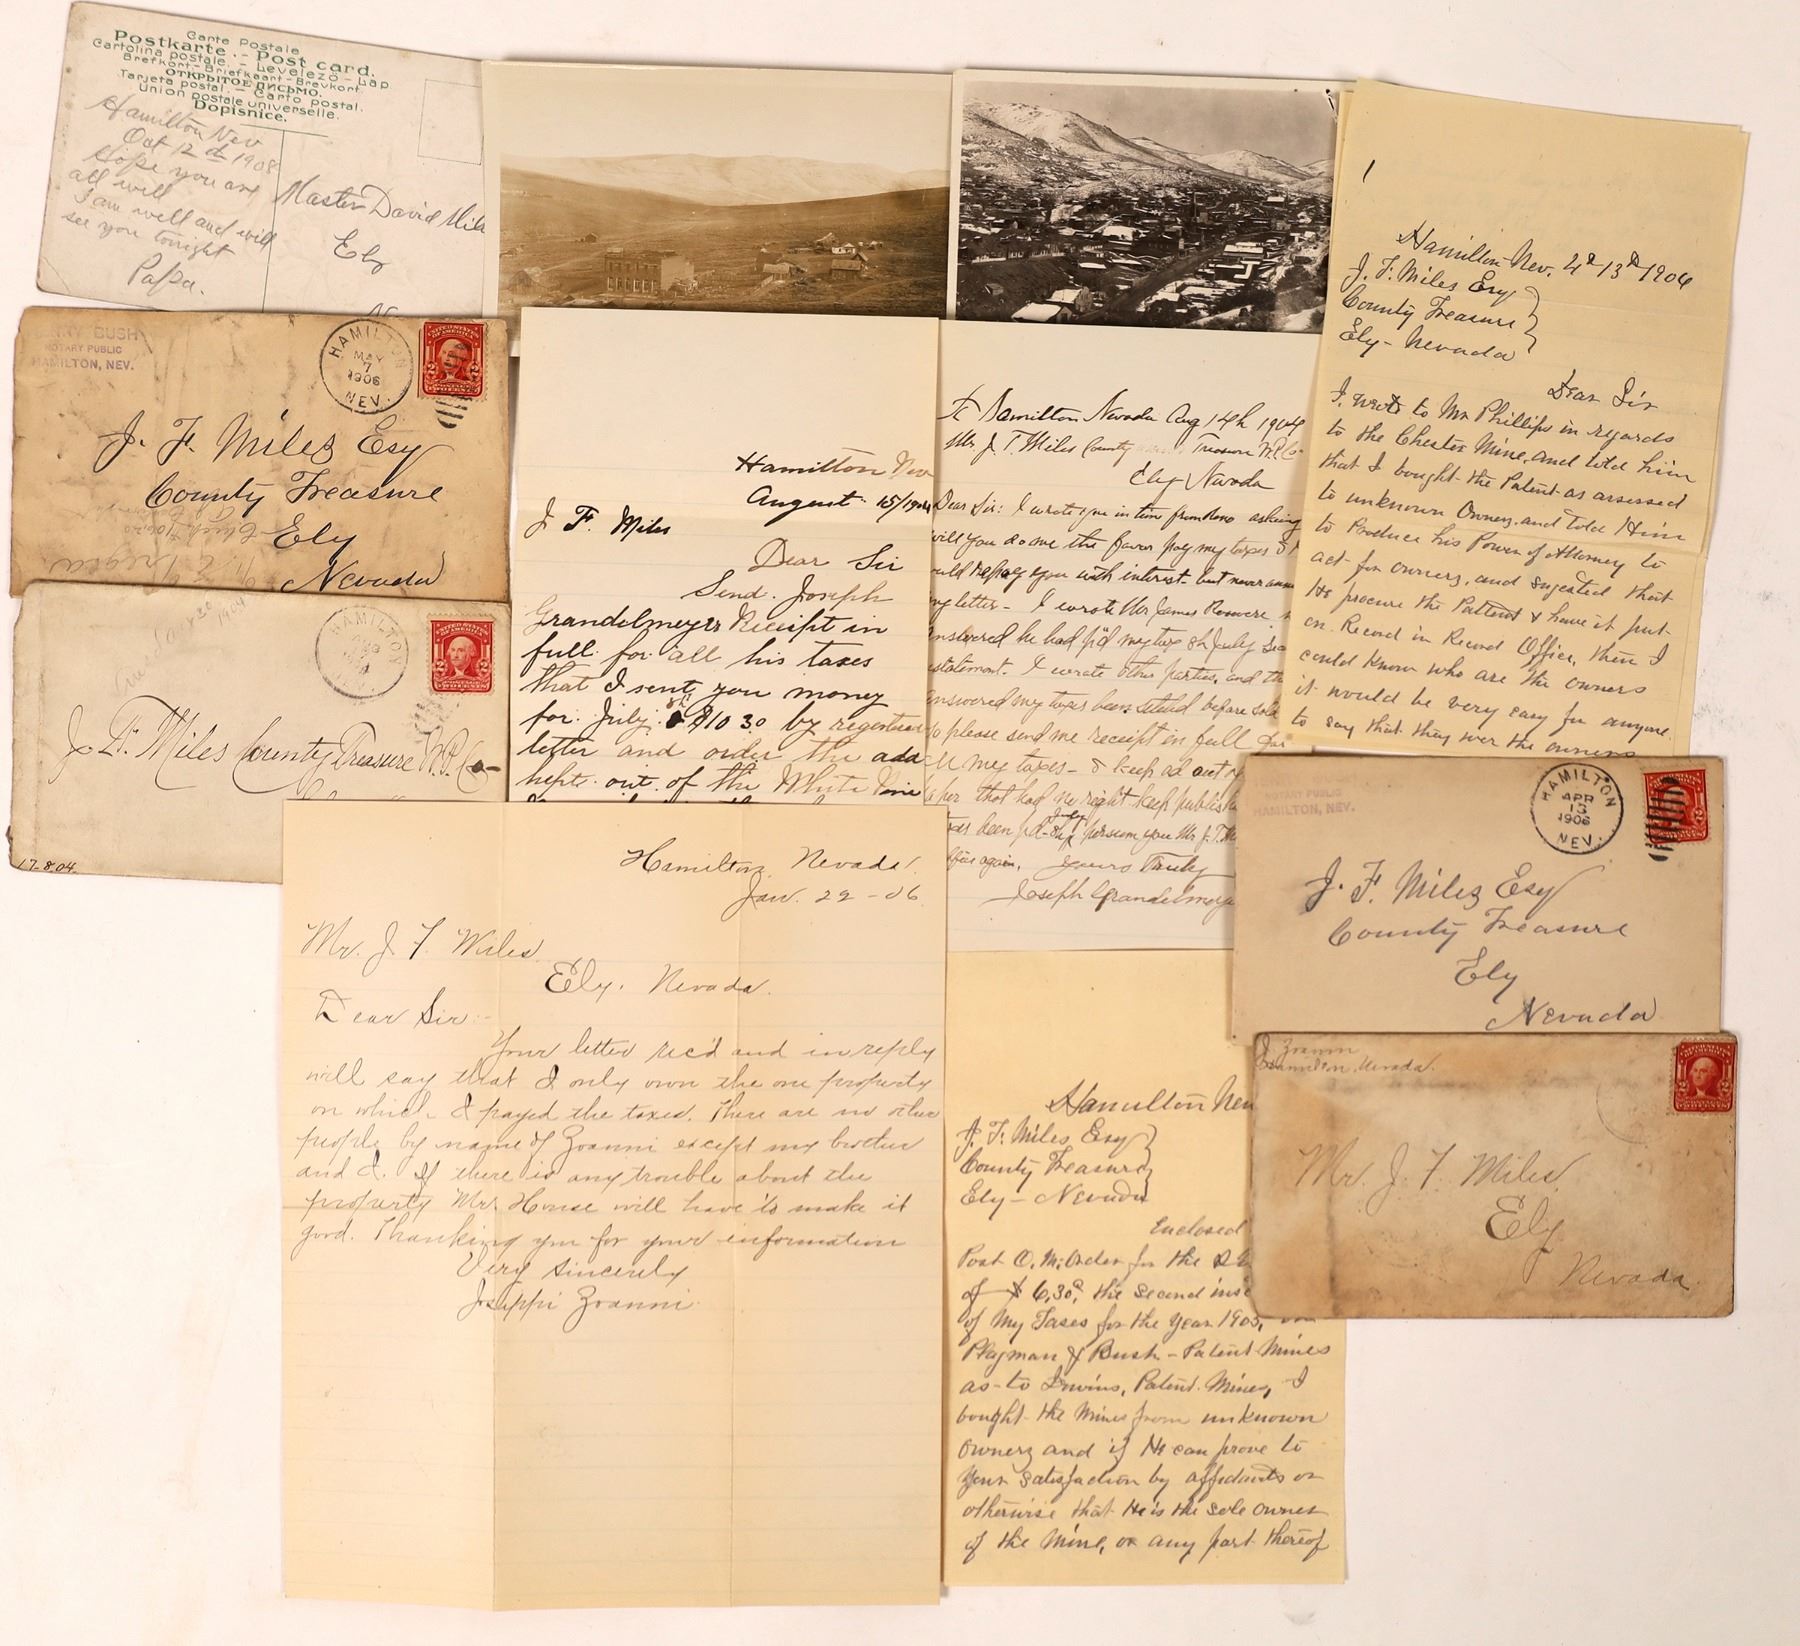 Carte Postale
Postkarte - Post card.
Cartolina postale. - Levelező - Lap
Brefkort - Briefkaart - Brevkort
ОТКРЫТОЕ ПИСЬМО.
Tarjeta postal. - Carto postal.
Union postale universelle.
Dopisnice.
Hamilton Nev
Oct 12th 1908
Hope you are
all well
I am well and will
see you tonight
Papa.
Master David Mile
Ely
BUSH
NOTARY PUBLIC
HAMILTON, NEV.
HAMILTON
MAY
7
1906
NEV.
J. F. Miles Esq
County Treasure
Ely
Nevada
HAMILTON
J. F. Miles County Treasure W.P. Co-
17.8.04.
Hamilton Nev
August 15/1904
J F. Miles
Dear Sir
Send. Joseph
Grandelmeyers Receipt in
full for all his taxes
that I sent you money
for July 8th $10 30 by
letter and order the add
kept out of the White Pine
Hamilton Nevada Aug 14th 1904
Mr. J. F. Miles County Treasure W.P. Co-
Ely Nevada
Dear Sir: I wrote you in time from Reno asking
will you do me the favor pay my taxes &
repay you with interest but never
my letter - I wrote Mr James
answered he had p'd my taxes 8th July
statement. I wrote other parties, and
answered my taxes been settled before sold
please send me receipt in full for
my taxes - & keep ad out
paper that had no right keep publish
been p'd 8th July person you Mr J. F.
again. Yours Truly
Joseph Grandelmeye
1
Hamilton Nev. 4th 13th 1906
J. F. Miles Esq
County Treasure
Ely - Nevada
Dear Sir
I wrote to Mr Phillips in regards
to the Chester Mine, and told him
that I bought the Patent as assessed
to unknown Owners, and told Him
to Produce his Power of Attorney to
act for owners, and sugested that
He procure the Pattent & have it put
on Record in Record Office, then I
could know who are the owners
it would be very easy for anyone
to say that they wer the owners
Hamilton, Nevada.
Jan. 22 - 06
Mr. J. F. Miles
Ely, Nevada.
Dear Sir:-
Your letter rec'd and in reply
will say that I only own the one property
on which I payed the taxes. There are no other
people by name of Zoanni except my brother
and I. If there is any trouble about the
property Mr. House will have to make it
good. Thanking you for your information
Very Sincerely
Joseppi Zoanni
NOTARY PUBLIC
HAMILTON, NEV.
HAMILTON
APR
13
1906
NEV.
J. F. Miles Esq
County Treasure
Ely
Nevada
J. Zoanni
Hamilton, Nevada.
Mr. J. F. Miles
Ely
Nevada.
Hamilton Nev
J. F. Miles Esq
County Treasure
Ely - Nevada
Enclosed
Post O. M. Order for the
of $6,30, the second
of My Taxes for the Year 1905,
Plagman & Bush - Patent Mines
as to Irwins, Patent. Mines, I
bought the Mines from unknown
Owners and if He can prove to
Your Satisfaction by affidavits or
otherwise that He is the sole owner
of the Mine, or any part thereof